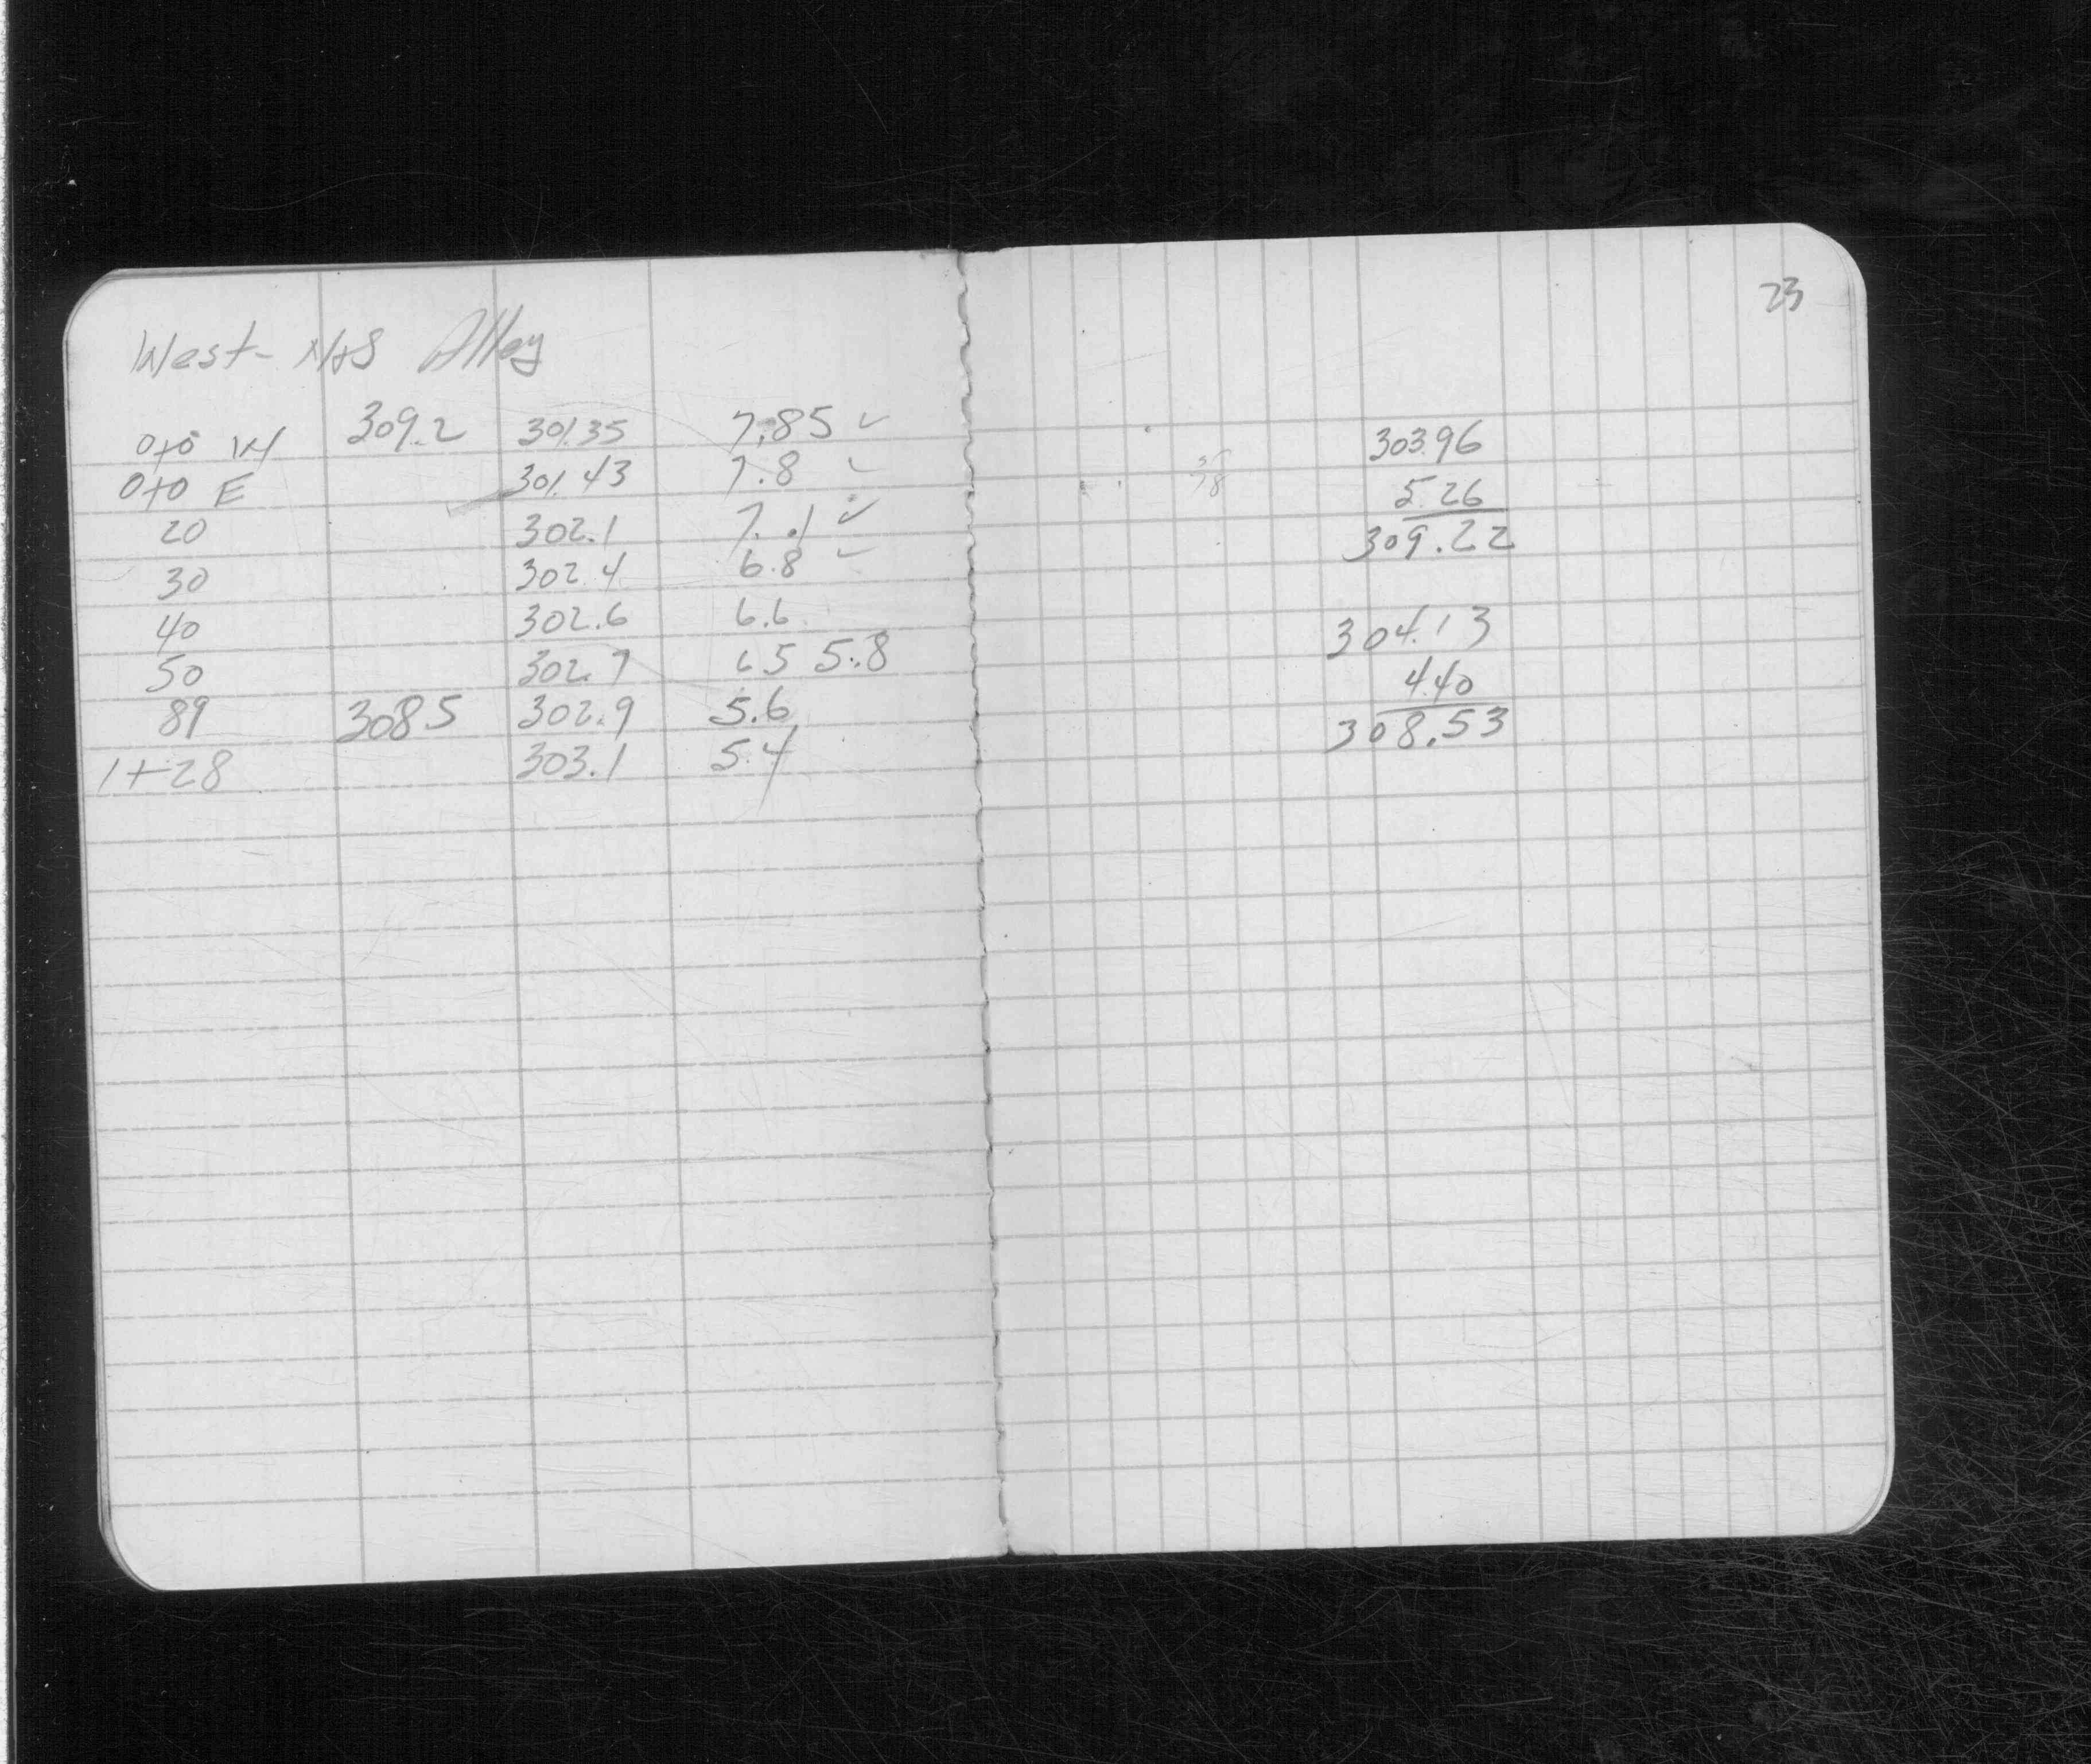 West- N+S Alley
0+0 W 309.2 301.35 7.85 ✓
0+0 E 301.43 7.8 ✓
20 302.1 7.1 ✓
30 302.4 6.8 ✓
40 302.6 6.6
50 302.7 6.5 5.8
89 308.5 302.9 5.6
1+28 303.1 5.4
23
303.96
5.26
309.22
304.13
4.40
308.53